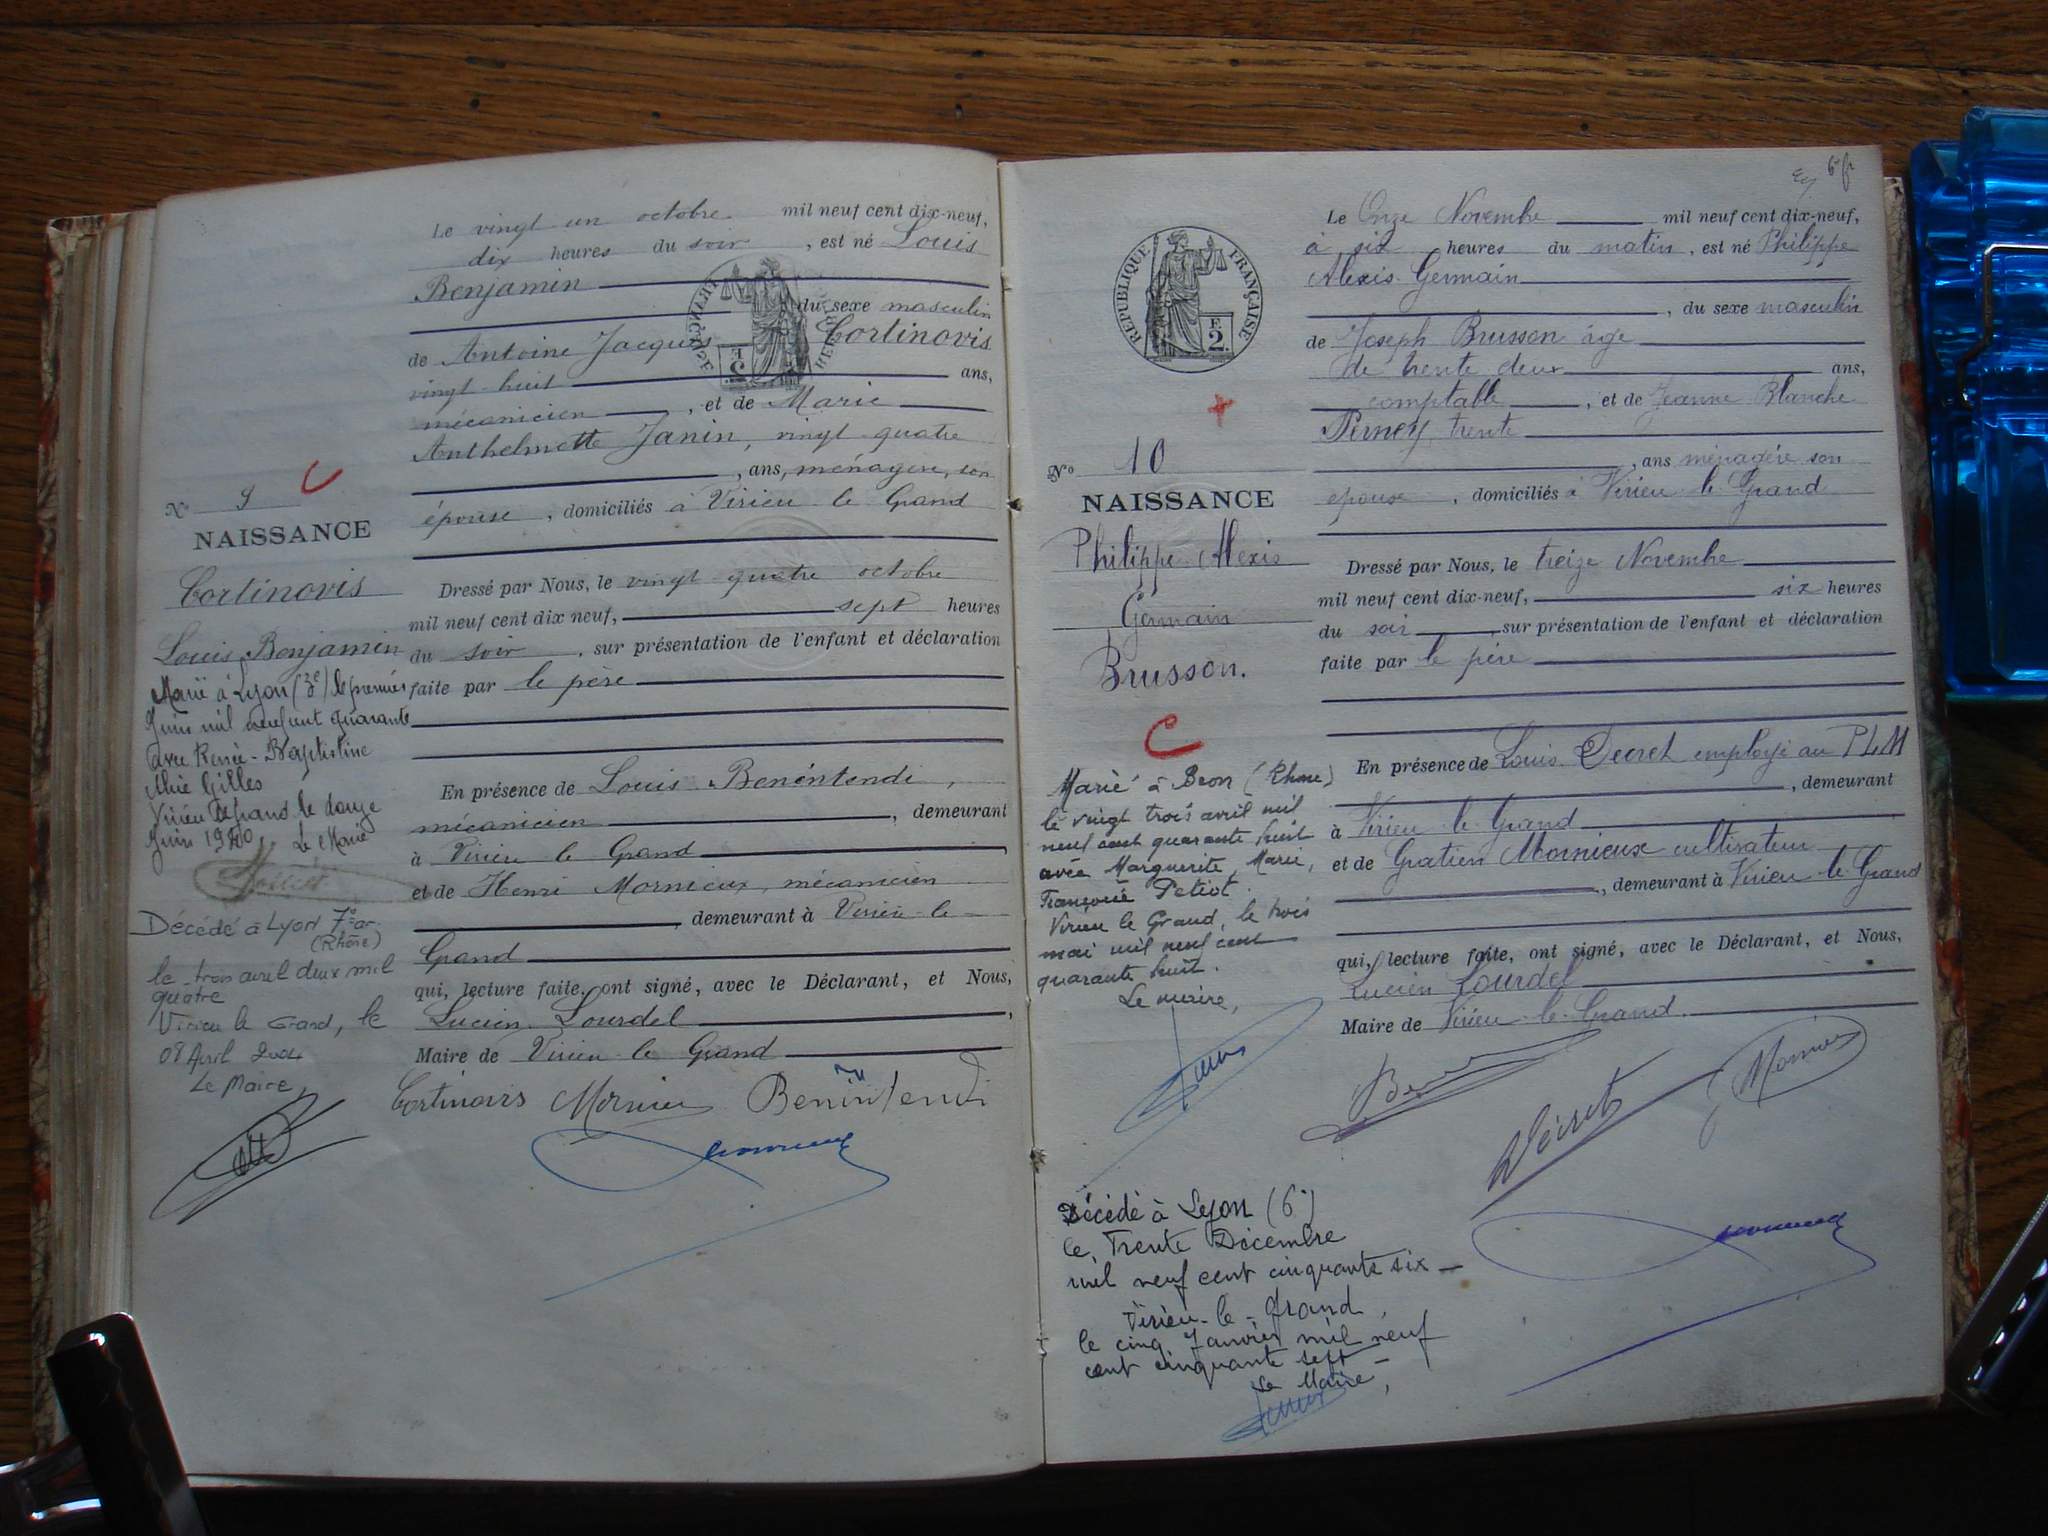 Le vingt un octobre mil neuf cent dix-neuf,
dix heures du soir, est né Louis
Benjamin
du sexe masculin
de Antoine Jacques Cortinovis
vingt huit ans,
mécanicien, et de Marie
Anthelmette Janin, vingt quatre
, ans, ménagère, son
épouse, domiciliés à Virieu le Grand
Dressé par Nous, le vingt quatre octobre
mil neuf cent dix neuf, sept heures
du soir, sur présentation de l'enfant et déclaration
faite par le père
En présence de Louis Benintendi,
mécanicien, demeurant
à Virieu le Grand
et de Henri Mornieux, mécanicien
, demeurant à Virieu le
Grand
qui, lecture faite, ont signé, avec le Déclarant, et Nous,
Lucien Lourdel,
Maire de Virieu le Grand
Cortinovis Mornieux Benintendi
No 9
NAISSANCE
Cortinovis
Louis Benjamin
Marié à Lyon (3e) le premier
Juin mil neuf cent quarante
avec Renée-Baptistine
Alice Gilles
Virieu le Grand le douze
Juin 1940. Le Maire
Décédé à Lyon 7° ar.
(Rhône)
le trois avril deux mil
quatre
Virieu le Grand, le
08 Avril 2004
Le Maire
6 fr
RÉPUBLIQUE FRANÇAISE
F.
2.
Le Onze Novembre mil neuf cent dix-neuf,
à six heures du matin, est né Philippe
Alexis Germain
, du sexe masculin
de Joseph Brusson âgé
de trente deux ans,
comptable, et de Jeanne Blanche
Perney, trente
, ans ménagère son
épouse, domiciliés à Virieu le Grand
Dressé par Nous, le treize Novembre
mil neuf cent dix-neuf, six heures
du soir, sur présentation de l'enfant et déclaration
faite par le père
En présence de Louis Decret employé au PLM
, demeurant
à Virieu le Grand
et de Gratien Mornieux cultivateur
, demeurant à Virieu le Grand
qui, lecture faite, ont signé, avec le Déclarant, et Nous,
Lucien Lourdel
Maire de Virieu le Grand.
No 10
NAISSANCE
Philippe Alexis
Germain
Brusson.
C
Marié à Bron (Rhône)
le vingt trois avril mil
neuf cent quarante huit
avec Marguerite, Marie,
Françoise Petiot.
Virieu le Grand, le trois
mai mil neuf cent
quarante huit.
Le maire,
Décret
Décédé à Lyon (6e)
le, Trente Décembre
mil neuf cent cinquante six
Virieu-le-Grand,
le cinq Janvier mil neuf
cent cinquante sept
Le Maire,